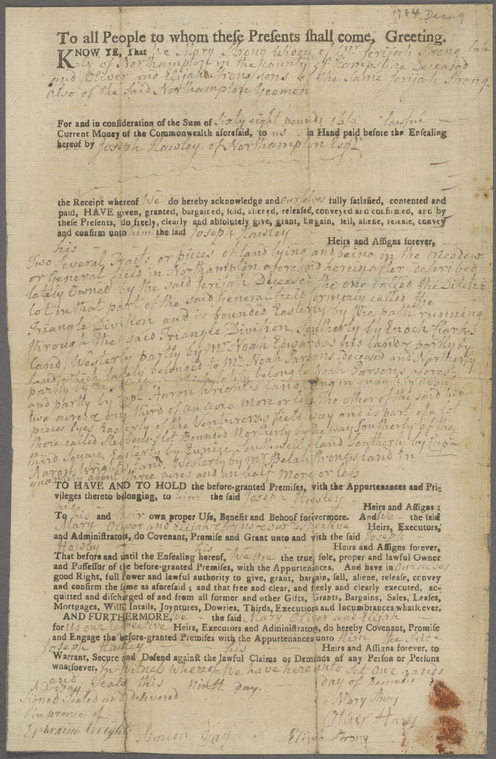 1784 Dec. 9
To all People to whom these Presents shall come, Greeting.
KNOW YE, That We Mary Strong of Jerijah Strong late
of Northampton in the County of Hampshire Deceased
and Oliver and Elijah Strong sons of the same Jerijah Strong
also of the said Northampton Yeomen
For and in consideration of the Sum of Sixty eight pounds lawful
Current Money of the Commonwealth aforesaid, to us in Hand paid before the Ensealing
hereof by Joseph Hawley of Northampton Esqr.
the Receipt whereof We do hereby acknowledge and ourselves fully satisfied, contented and
paid, HAVE given, granted, bargained, sold, aliened, released, conveyed and confirmed, and by
these Presents, do freely, clearly and absolutely give, grant, bargain, sell, aliene, release, convey
and confirm unto him the said Joseph Hawley
his Heirs and Assigns forever,
Two Several Tracts or pieces of land lying and being in the Meadow
or General Field in Northampton aforesaid hereinafter described
lately Owned by the said Jerijah Deceased the one called the
lot in that part of the said General Field formerly called the
Triangle Division and is bounded Easterly by the path running
through the said Triangle Division, Southerly by Enoch Clark's
land, Westerly partly by Mr. Noah Edwards his land & partly by
land which lately belonged to Mr. Noah Parsons deceased and Northerly
partly by Noah Parsons
and partly by Aaron Wright's Land in quantity about
two acres & one third of an acre more or less. The other of the said
pieces lyes Easterly of the Venturers Field way and is part of a lot
there called Bounded Northerly by a way Southerly of the
third Square, Easterly by and Southerly by
Aaron Wright's land, Westerly by Mr. Selah Strongs land in
quantity about three acres and an half more or less
TO HAVE AND TO HOLD the before-granted Premises, with the Appurtenances and Privileges
thereto belonging, to him the said Joseph Hawley
his Heirs and Assigns:
To his and their own proper Use, Benefit and Behoof forevermore. And We the said
Mary Oliver and Elijah for us our respective Heirs, Executors,
and Administrators, do Covenant, Promise and Grant unto and with the said Joseph
Hawley his Heirs and Assigns forever,
That before and until the Ensealing hereof, We are the true, sole, proper and lawful Owner
and Possessor of the before-granted Premises, with the Appurtenances. And have in ourselves
good Right, full Power and lawful authority to give, grant, bargain, sell, aliene, release, convey
and confirm the same as aforesaid; and that free and clear, and freely and clearly executed, acquitted
and discharged of and from all former and other Gifts, Grants, Bargains, Sales, Leases,
Mortgages, Wills, Intails, Joyntures, Dowries, Thirds, Executions and Incumbrances whatsoever.
AND FURTHERMORE, We the said Mary Oliver and Elijah
for us our respective Heirs, Executors and Administrators, do hereby Covenant, Promise
and Engage the before-granted Premises with the Appurtenances unto him the said
Joseph Hawley his Heirs and Assigns forever, to
Warrant, Secure and Defend against the lawful Claims or Demands of any Person or Persons
whatsoever. In Witness Whereof We have hereunto set our hands
and seals this Ninth day day of December
A.D. 1784
Signed Sealed and delivered
in presence of
Mary Strong
Oliver Strong
Ephraim Wright
Elijah Strong